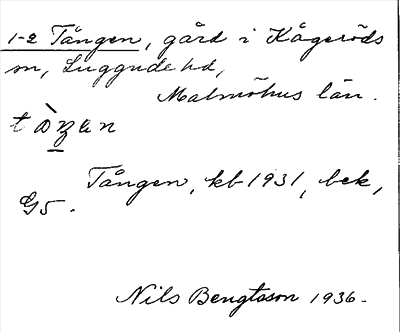 1-2 Tången, gård i Kågeröds
sn, Luggude hd,
Malmöhus län.
Tången, kb 1931, bek,
G5.
Nils Bengtsson 1936.